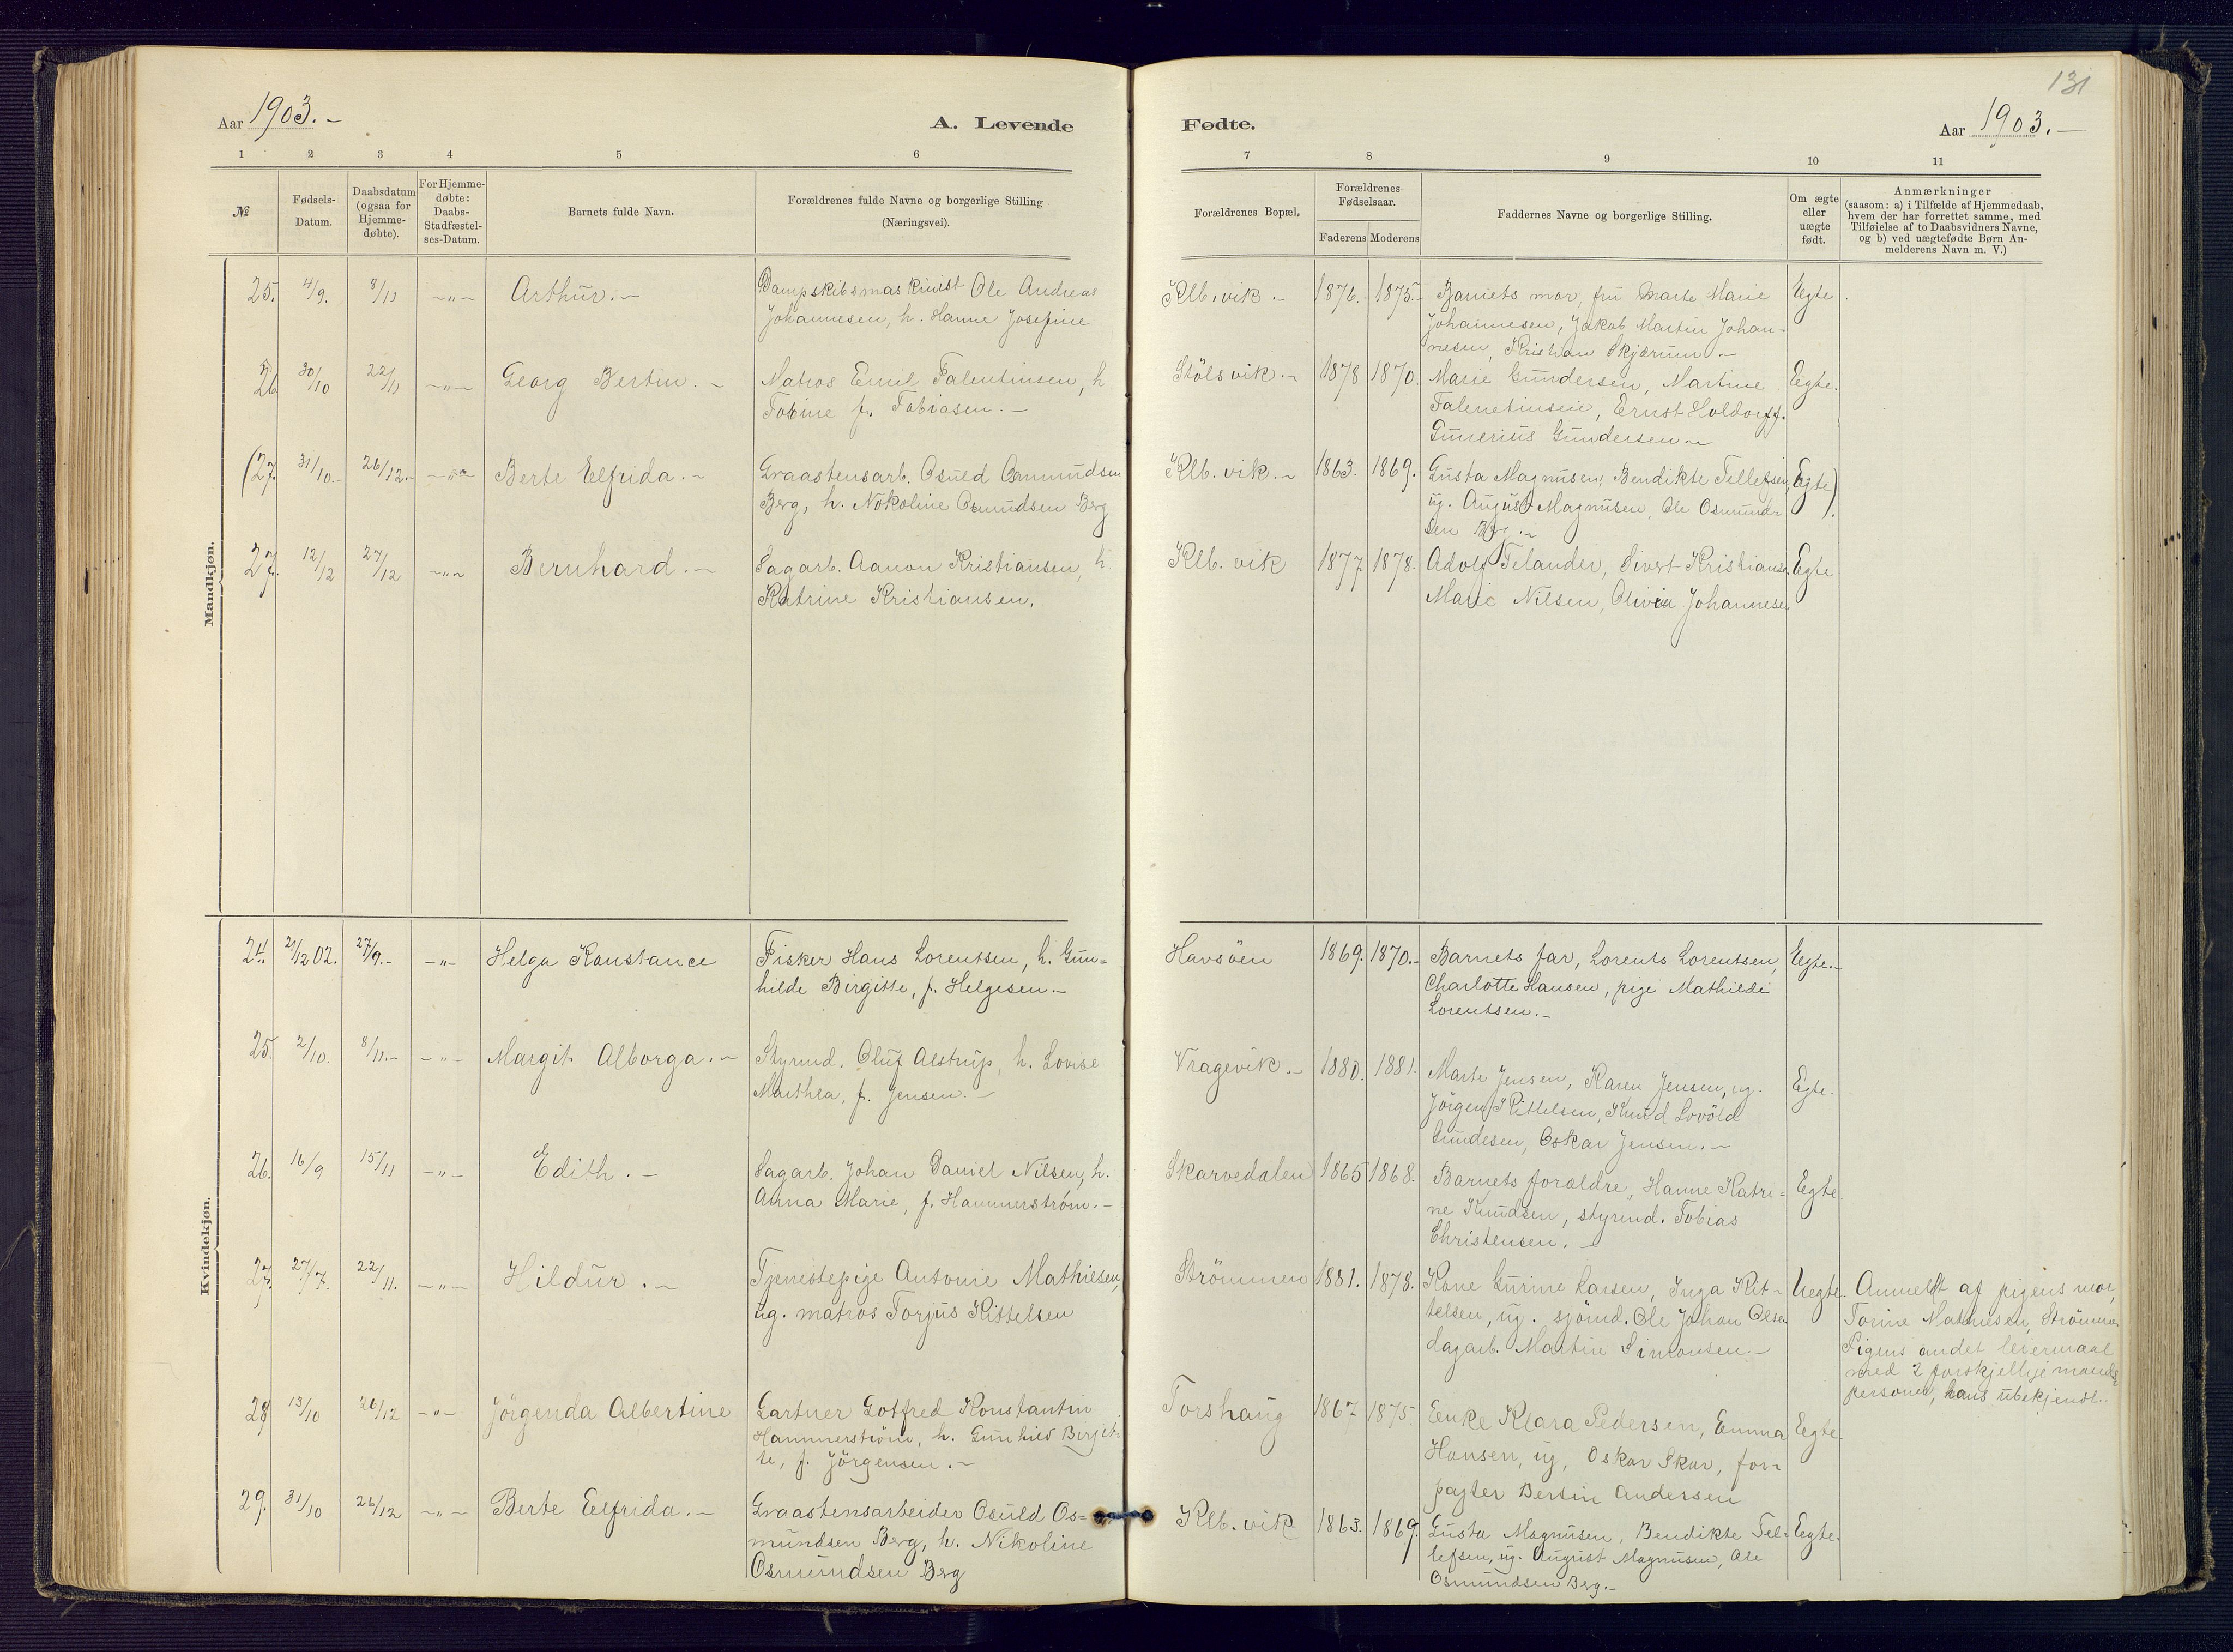 131
Aar 1903.-
A. Levende
Fødte.
Aar 1903.-
1 2 3 4 5 6
7 8 9 10 11
№
Fødsels-
Datum.
Daabsdatum
(ogsaa for
Hjemme-
døbte).
For Hjemme-
døbte:
Daabs-
Stadfæstel-
ses-Datum.
Barnets fulde Navn.
Forældrenes fulde Navne og borgerlige Stilling
(Næringsvei).
Forældrenes Bopæl.
Forældrenes
Fødselsaar.
Faderens Moderens
Faddernes Navne og borgerlige Stilling.
Om ægte
eller
uægte
født.
Anmærkninger
(saasom: a) i Tilfælde af Hjemmedaab,
hvem der har forrettet samme, med
Tilføielse af to Daabsvidners Navne,
og b) ved uægtefødte Børn An-
melderens Navn m. V.)
Mandkjøn.
25. 4/9. 8/11 -"- Arthur.- Dampskibsmaskinist Ole Andreas
Johannesen, h. Hanne Josefine
Klb.vik.- 1876. 1875.- Barnets mor, fru Marte Marie Egte
Johannesen, Jakob Martin Johan-
nesen, Kristian Skjærum -
26 30/10 22/11 -"- Georg Bertin.- Matros Emil Falentinsen, h
Tobine f. Tobiasen.-
Stölsvik.- 1878 1870. Marie Gundersen, Martine Egte.
Falenetinsen, Ernst Holdorff.
Gunerius Gundersen -
(27. 31/10.- 26/12.- -"- Berte Elfrida.- Graastensarb. Osuld Osmundsen
Berg, h. Nokoline Osmundsen Berg
Klb.vik.- 1863. 1869. Gusta Magnusen, Bendikte Tellefsen, Egte).
ug. August Magnusen, Ole Osmund-
sen Berg.-
27. 12/12 27/12 -"- Bernhard.- Sagarb. Aanon Kristiansen, h.
Katrine Kristiansen.
Klb.vik 1877. 1878. Adolf Filander, Sivert Kristiansen Egte
Marie Nilsen, Olivia Johannesen
Kvindekjøn.
24. 21/12 02. 27/9.- -"- Helga Konstance Fisker Hans Lorentsen, h. Gun-
hilde Birgitte, f. Helgesen.-
Havsöen 1869. 1870.- Barnets far, Lorents Lorentsen, Egte.-
Charlotte Hansen, pige Mathilde
Lorentsen.-
25. 2/10. 8/11.- -"- Margit Alborga.- Styrmd. Oluf Alstrup, h. Lovise
Marthea, f. Jensen.-
Vragevik.- 1880. 1881. Marte Jensen, Karen Jensen, ug. Egte.
Jörgen Kittelsen, Knud Lovöld
Gundesen, Oskar Jensen.-
26. 16/9 15/11 -"- Edith.- Sagarb. Johan Daniel Nilsen, h.
Anna Marie, f. Hammerström.-
Skarvedalen 1865 1868. Barnets forældre, Hanne Katri- Egte.
ne Knudsen, styrmd. Tobias
Christensen.-
27. 27/7. 22/11. -"- Hildur.- Tjenestepige Antonie Mathiesen,
ug. matros Torjus Kittelsen
Strömmen 1881. 1878. Kone Gurine Larsen, Inga Kit- Uegte. Anmeldt af pigens mor,
telsen, ug. sjömd. Ole Johan Olsen Torine Mathiesen, Strömmen
dagarb. Martin Simonsen.- Pigens andet leiermaal
med 2 forskjellige mands-
personer, hans ubekjendt.
28 13/10 26/12 -"- Jörgenda Albertine Gartner Gotfred Konstantin
Hammerström, h. Gunhild Birgit-
te, f. Jörgensen.-
Torshaug 1867 1875. Enke Klara Pedersen, Emma Egte.
Hansen, ug, Oskar Skar, for-
pagter Bertin Andersen
29. 31/10 26/12 -"- Berte Elfrida.- Graastensarbeider Osuld Os-
mundsen Berg, h. Nikoline
Osmundsen Berg
Klb.vik 1863. 1869. Gusta Magnusen, Bendikte Tel- Egte.
lefsen, ug. August Magnusen, Ole
Osmundsen Berg.-